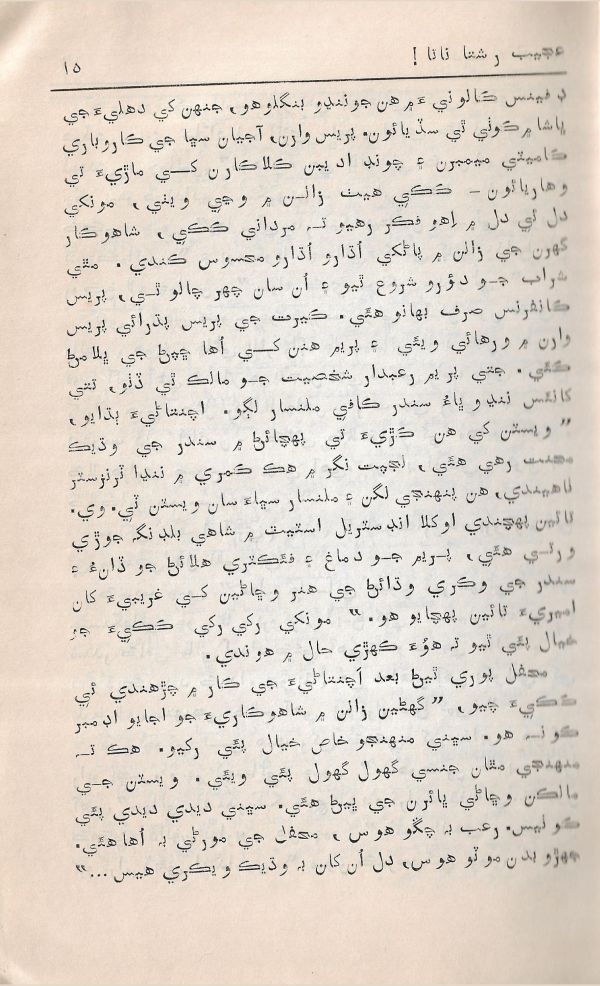 عجيب رشتا ناتا !
١٥
ڊفينس ڪالوني ۾ هن جو ننڍو بنگلو هو، جنهن کي دهليءَ جي
ڀاشا ۾ ڪوٺي ٿي سڏيائون. پريس وارن، آجيان سڀا جي ڪاروباري
ڪاميٽي ميمبرن ۽ چونڊ اديبن ڪلاڪارن کي ماڙيءَ تي
وهاريائون – ڪڪي هيٺ زالن ۾ وڃي ويٺي، مونکي
دل ئي دل ۾ اِهو فڪر رهيو تہ مرداني ڪڪي، شاهوڪار
گهرن جي زالن ۾ پاڻکي اُڌارو اُڌارو محسوس ڪندي. مٿي
شراب جو دؤرو شروع ٿيو ۽ اُن سان چهر چالو ٿي، پريس
ڪانفرنس صرف بهانو هئي. ڪيرت جي پريس پڌرائي پريس
وارن ۾ ورهائي ويئي ۽ پريم هنن کي اُها ڇپڻ جي ڀلامڻ
ڪئي. جتي پريم رعبدار شخصيت جو مالڪ ٿي ڏٺو، تتي
ننڍو ڀاءُ سندر ڪافي ملنسار لڳو. اچنتاڻيءَ ٻڌايو،
” ويسٽن کي هن ڪڙيءَ تي پهچائڻ ۾ سندر جي وڌيڪ
محنت رهي هئي، لجپت نگر ۾ هڪ ڪمري ۾ ننڍا ٽرنزسٽر
ٺاهيندي، هن پنهنجي لگن ۽ ملنسار سڀاءَ سان ويسٽن ٽي. وي.
تائين پهچندي اوکلا انڊسٽريل اسٽيٽ ۾ شاهي بلڊنگ جوڙي
ورتي هئي، پريم جو دماغ ۽ فئڪٽري هلائڻ جو ڏانءُ ۽
سندر جي وڪري وڌائڻ جي هنر وڇاڻين کي غريبيءَ کان
اميريءَ تائين پهچايو هو.“ مونکي رکي رکي ڪڪيءَ جو
خيال پئي ٿيو تہ هوءَ ڪهڙي حال ۾ هوندي.
محفل پوري ٿيڻ بعد اَچنتاڻيءَ جي ڪار ۾ چڙهندي ئي
ڪڪيءَ چيو، ” گهڻين زالن ۾ شاهوڪاريءَ جو اجايو اڊمبر
ڪونہ هو. سڀني منهنجو خاص خيال پئي رکيو. هڪ تہ
منهنجي مٿان جنسي گهول گهول پئي ويئي. ويسٽن جي
مالڪن وڇاڻي ڀائرن جي ڀيڻ هئي. سڀني ديدي ديدي پئي
ڪوٺيس. رعب بہ چڱو هوس، محفل جي مورڻي بہ اُها هئي.
جهڙو بدن موٽو هوس، دل اُن کان بہ وڌيڪ ويڪري هيس ...“